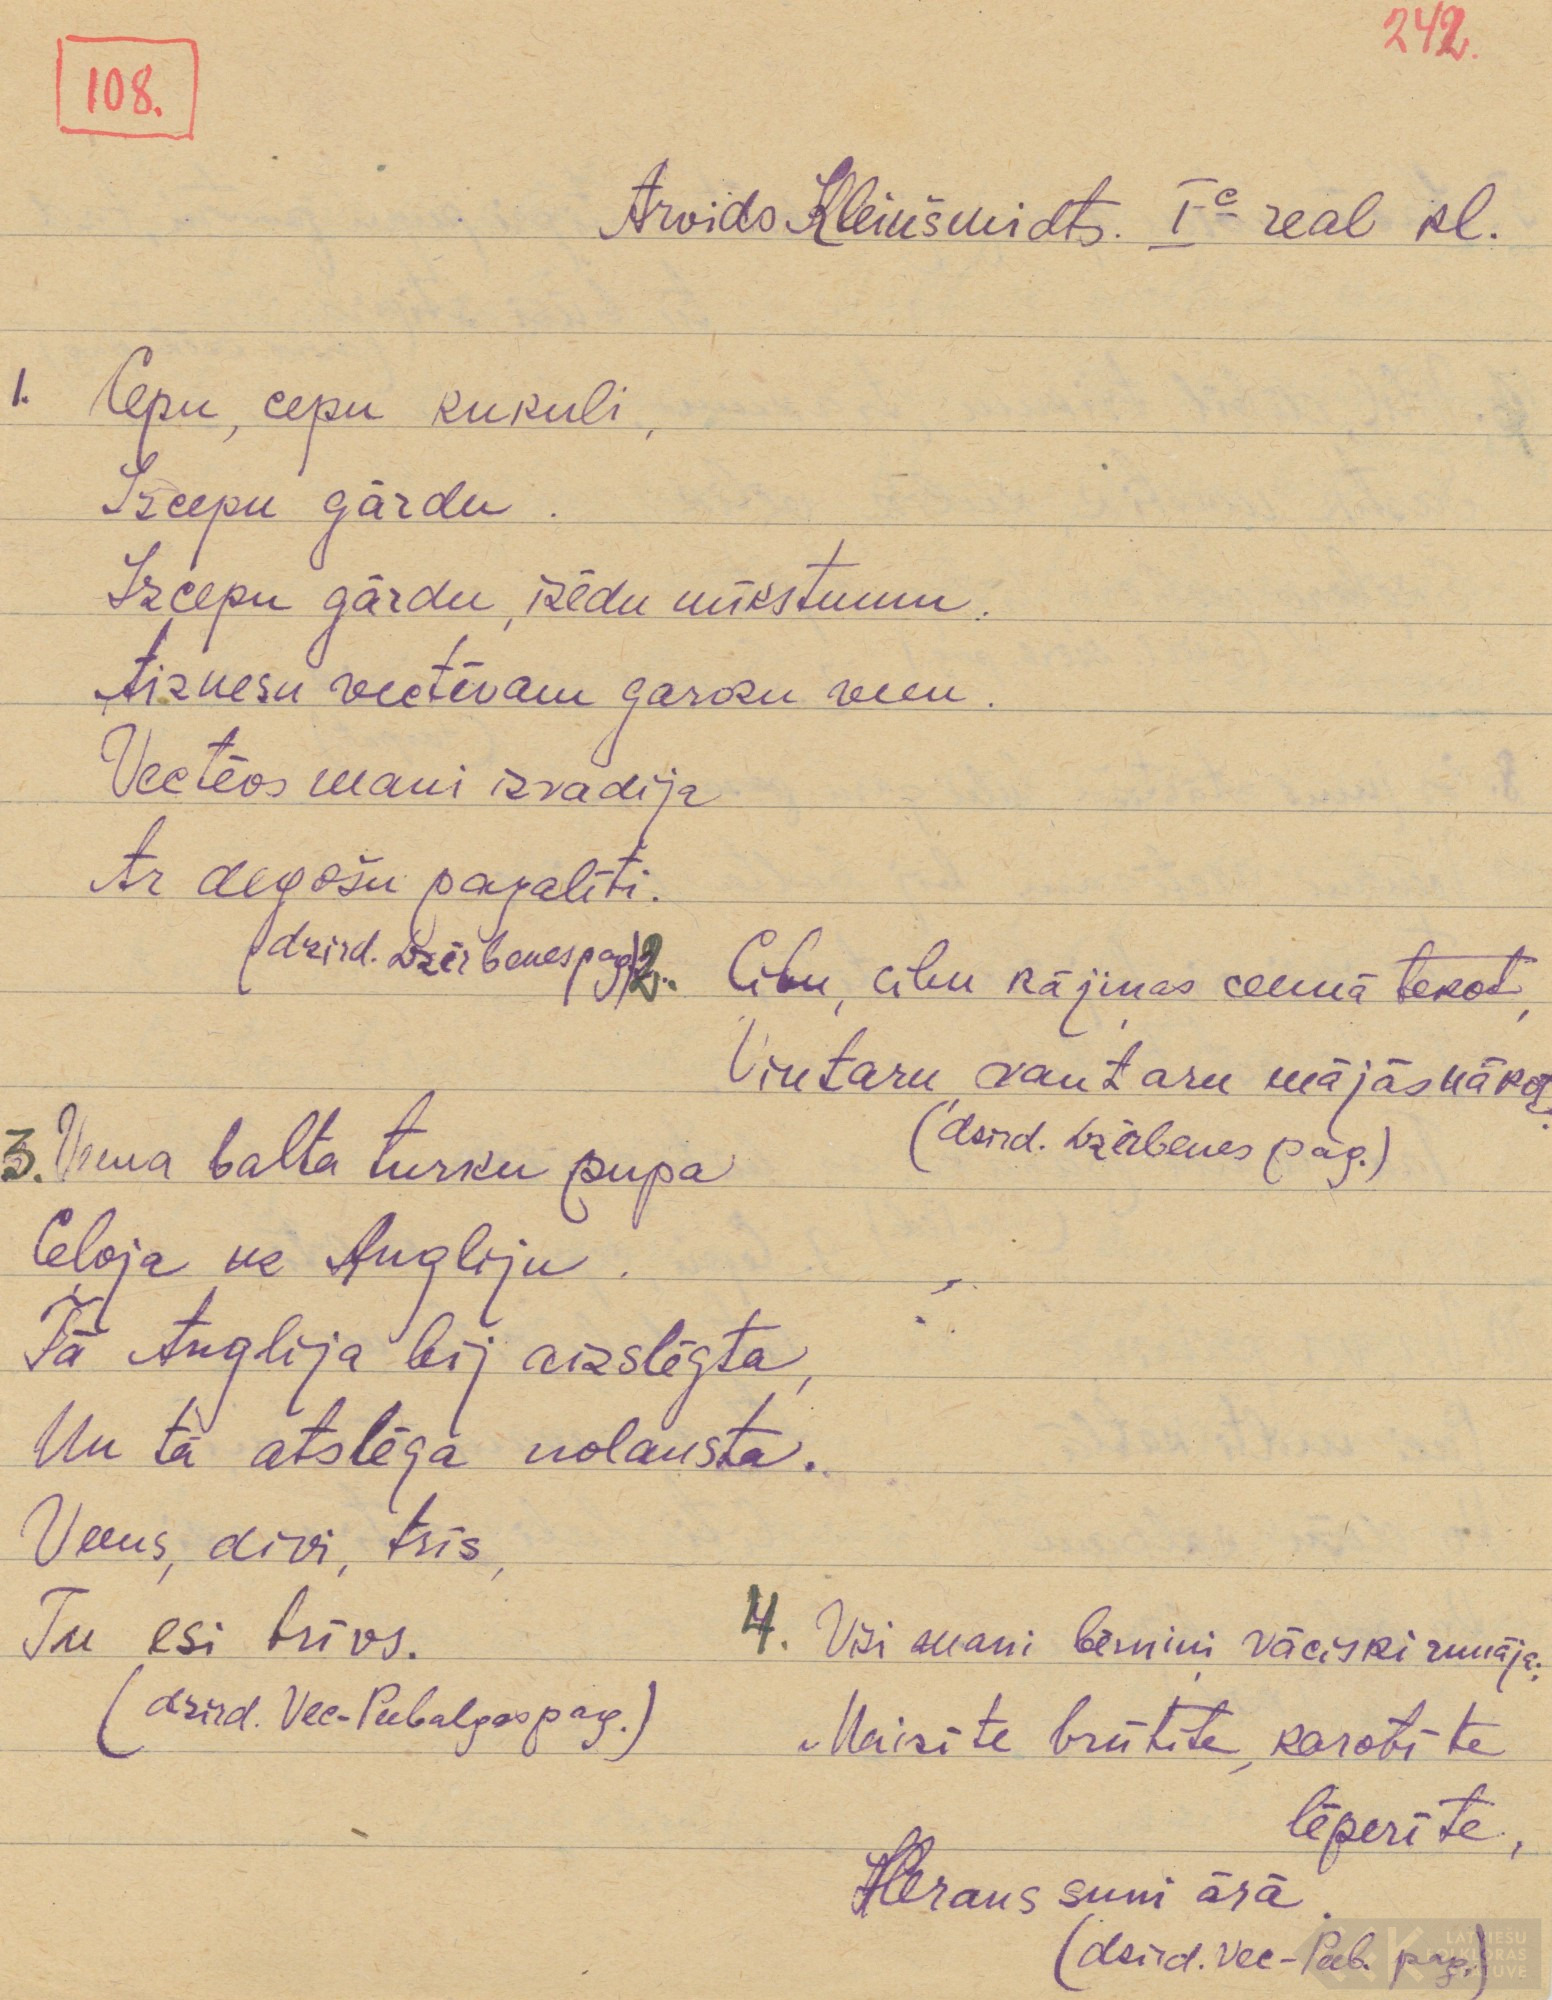 108.
242.
Arvids Kleinšmidts. I c real kl.
1. Cepu, cepu kukuli,
Izcepu gārdu.
Izcepu gārdu, izēdu mīkstumu.
Aiznesu vectēvam garozu veen.
Vectēvs mani izvadīja
Ar degošu pagalīti.
(dzird. Dzērbenes pag.)
2. Cibu, cibu kājiņas ceemā tekot,
Vintaru, vantaru mājās nākot.
(dzird. Dzērbenes pag.)
3. Veena balta turku pupa
Ceļoja uz Angliju.
Tā Anglija bij aizslēgta,
Un tā atslēga nolausta.
Veens, divi, trīs,
Tu esi brīvs.
(dzird. Vec-Peebalgas pag.)
4. Visi mani bērniņi vāciski runāja:
Maizīte brūtīte, karotīte
lēperīte,
Heraus suni ārā.
(dzird. Vec-Peeb. pag.)
LATVIEŠU
FOLKLORAS
KRĀTUVE